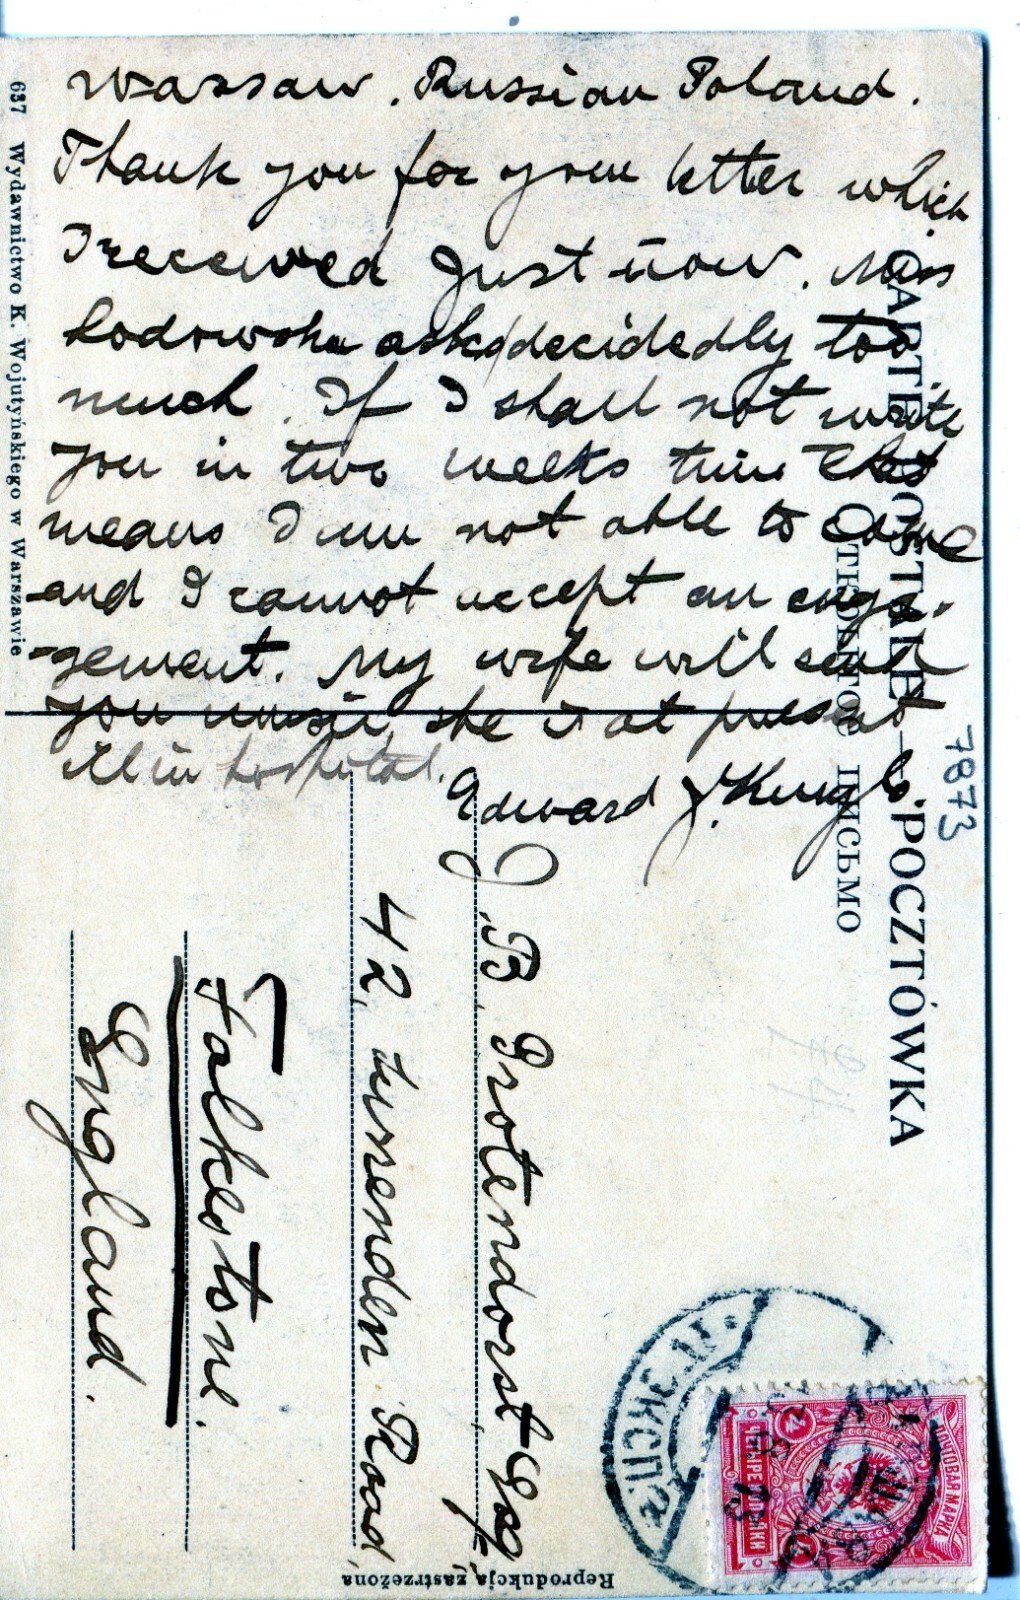 Warsaw. Russian Poland.
Thank you for your letter which
I received just now. Miss
asks decidedly too
much. If I shall not write
you in two weeks time that
means I am not able to come
and I cannot accept an enga-
-gement. My wife will
you she is at present
ill in hospital.
Edward J.
B. Protendorst Esq
42, Road,
Folkestone.
England.
CARTE POSTALE — POCZTÓWKA
ОТКРЫТОЕ ПИСЬМО
7873
637 Wydawnictwo K. Wojutyńskiego w Warszawie
Reprodukcja zastrzeżona
ПОЧТОВАЯ МАРКА
4
4
ЧЕТЫРЕ КОПѢЙКИ
ЭКСП.